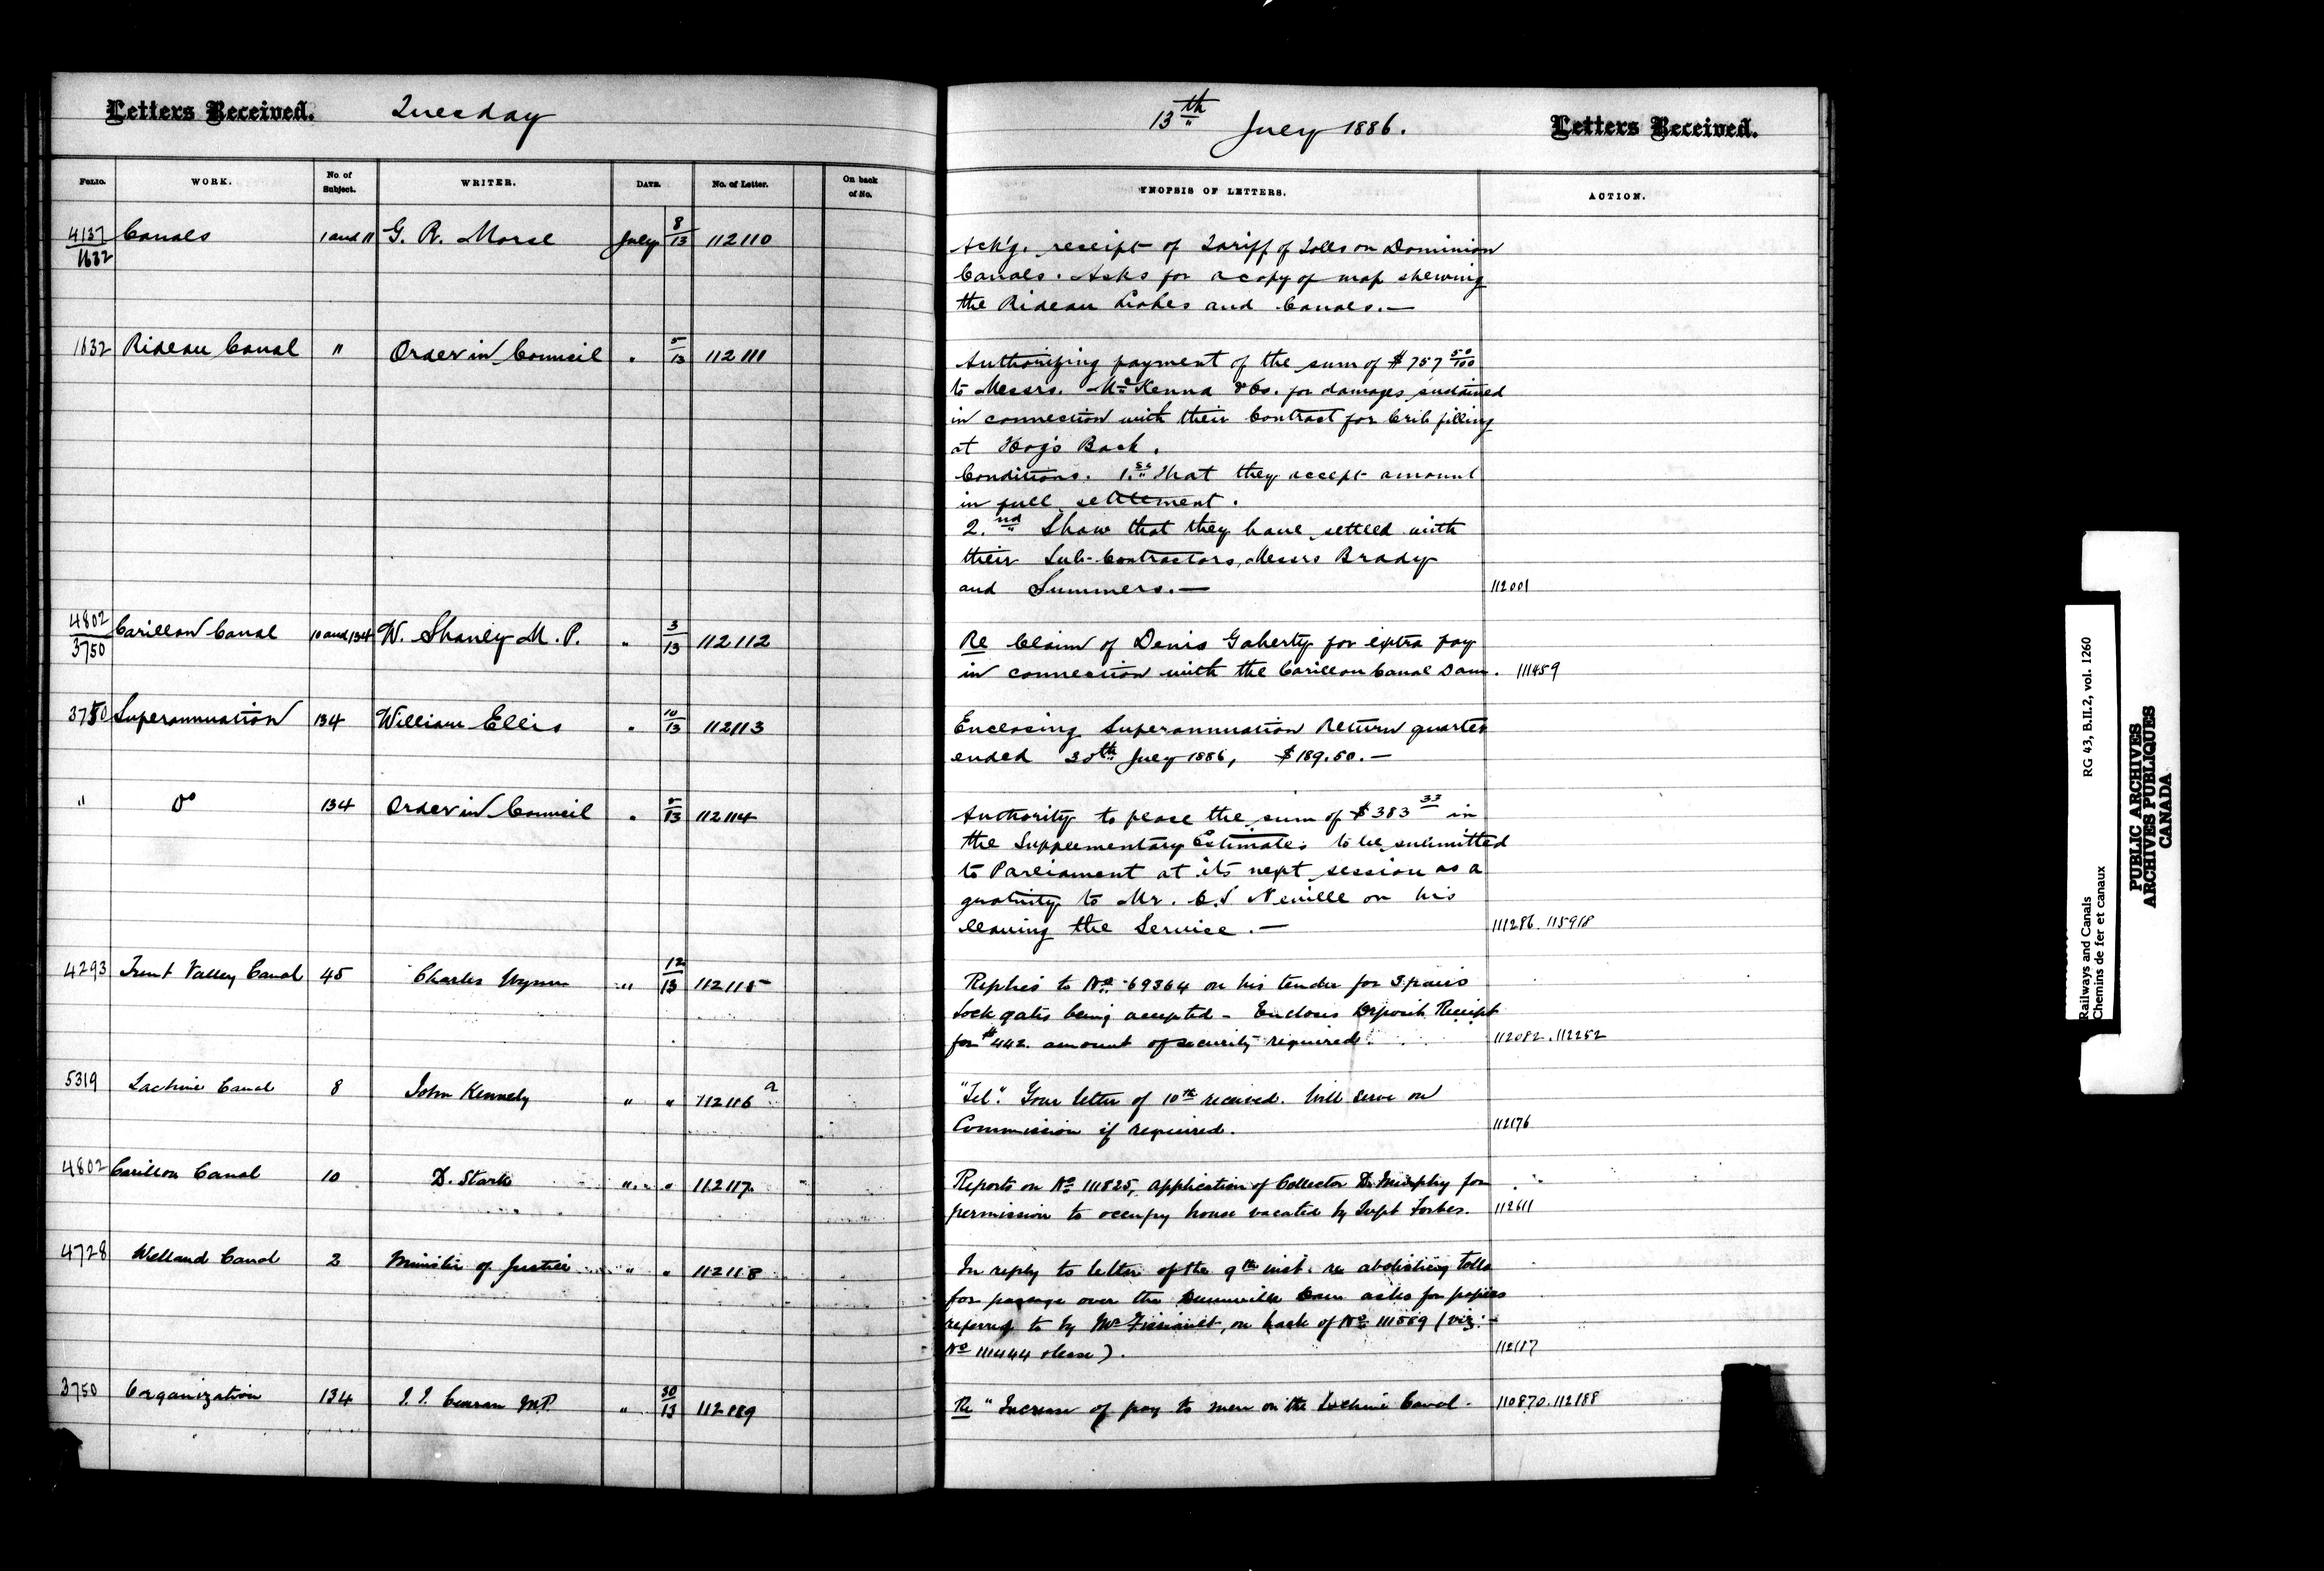 Letters Received. Tuesday 13th July 1886. Letters Received.
FOLIO. WORK. No. of Subject. WRITER. DATE. No. of Letter. On back of No. SYNOPSIS OF LETTERS. ACTION.
4137/1632 Canals 1 and 11 G. R. Morse July 8/13 112110
Ack'g. receipt of Tariff of Tolls on Dominion
Canals. Asks for a copy of map shewing
the Rideau Lakes and Canals.—
1632 Rideau Canal " Order in Council " 5/13 112111
Authorizing payment of the sum of $757 50/100
to Messrs. McKenna & Co. for damages sustained
in connection with their Contract for Crib filling
at Hog's Back.
Conditions. 1.st That they accept amount
in full settlement.
2.nd Show that they have settled with
their Sub-Contractors, Messrs Brady
and Summers.— 112001
4802/3750 Carillon Canal 10 and 134 W. Shanly M. P. " 3/13 112112
Re Claim of Denis Gaherty for extra pay
in connection with the Carillon Canal Dam. 111459
3750 Superannuation 134 William Ellis " 10/13 112113
Enclosing Superannuation Return quarter
ended 30th July 1886, $189.50.—
" Do 134 Order in Council " 5/13 112114
Authority to place the sum of $383 33 in
the Supplementary Estimates to be submitted
to Parliament at its next session as a
gratuity to Mr. C. S. Neville on his
leaving the Service.— 111286. 115918
4293 Trent Valley Canal 45 Charles Wynn " 12/13 112115
Replies to No 69364 on his tender for 3 pairs
Lock gates being accepted - Encloses Deposit Receipt
for $442. amount of security required. 112082. 112252
5319 Lachine Canal 8 John Kennedy " " 112116 a
"Tel". Your letter of 10th received. Will serve on
Commission if required. 112176
4802 Carillon Canal 10 D. Stark " " 112117
Reports on No 111825, application of Collector D. Murphy for
permission to occupy house vacated by Supt Forbes. 112611
4728 Welland Canal 2 Minister of Justice " " 112118
In reply to letter of the 9th inst. re abolishing tolls
for passage over the Dunnville Dam asks for papers
referred to by Mr Fissiault, on back of No 111559 (viz:-
No 111444 please). 112187
3750 Organization 134 J. J. Curran M.P. " 30/13 112119
Re "Increase of pay to men on the Lachine Canal. 110870. 112188
Railways and Canals RG 43, B.II.2, vol. 1260
Chemins de fer et canaux
PUBLIC ARCHIVES
ARCHIVES PUBLIQUES
CANADA